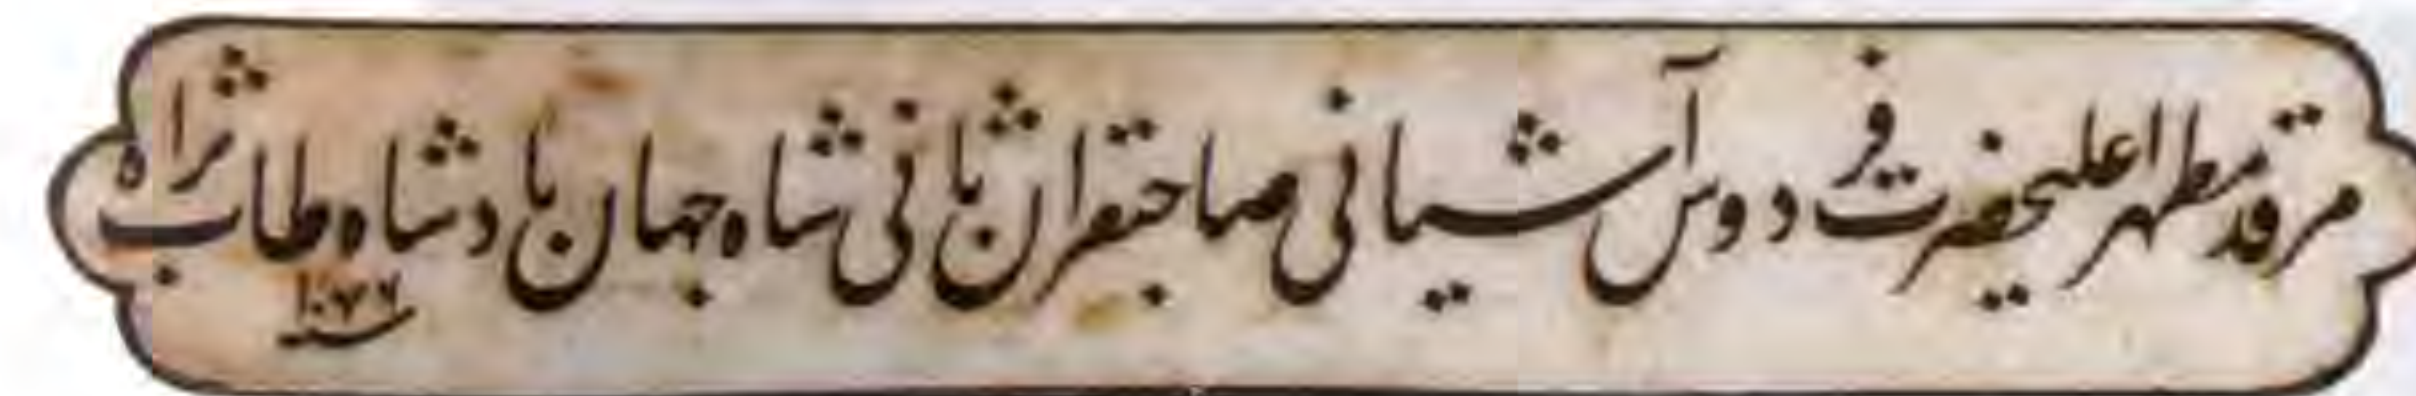 مرقد مطهر اعلیحضرت فردوس آشیانی صاحبقران ثانی شاه جهان بادشاه طاب ثراه
سنه ۱۰۷۶